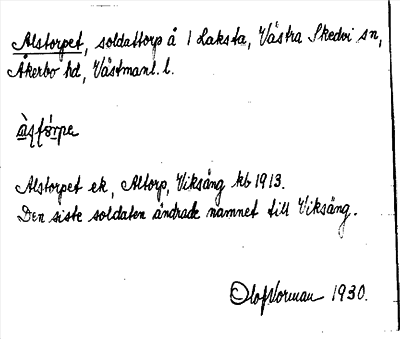 Alstorpet, soldattorp å 1 Laksta, Västra Skedvi sn,
Åkerbo hd, Västmanl. l.
Alstorpet ek, Altorp, Viksäng kb 1913.
Den siste soldaten ändrade namnet till Viksäng.
Olof Norman 1930.